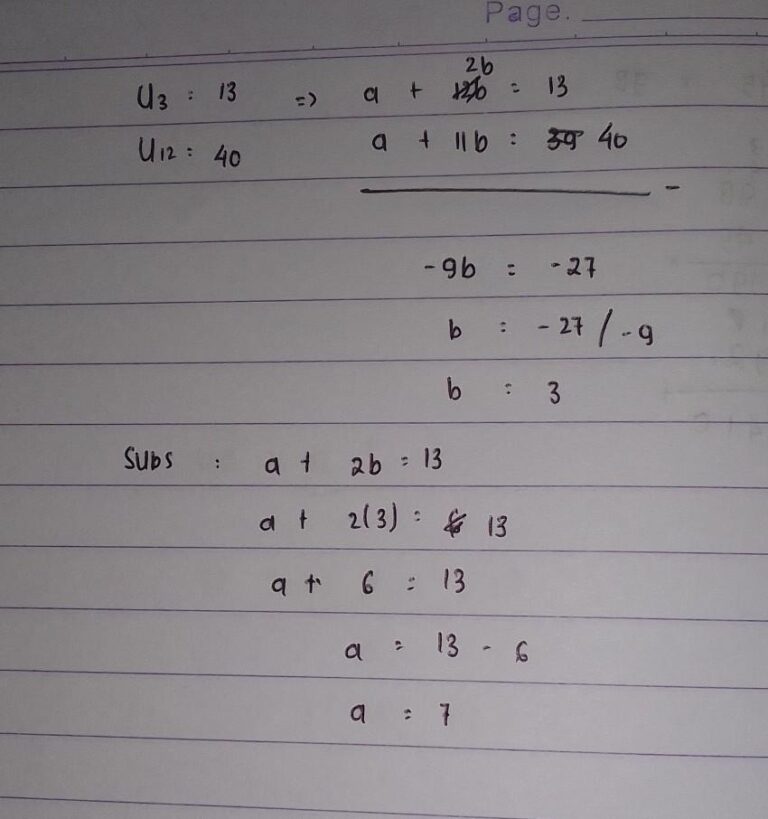 Page.
U3 : 13 => a + 2b = 13
U12 : 40 a + 11b = 40
-
-9b = -27
b = -27 / -9
b = 3
Subs : a + 2b = 13
a + 2(3) = 13
a + 6 = 13
a = 13 - 6
a = 7